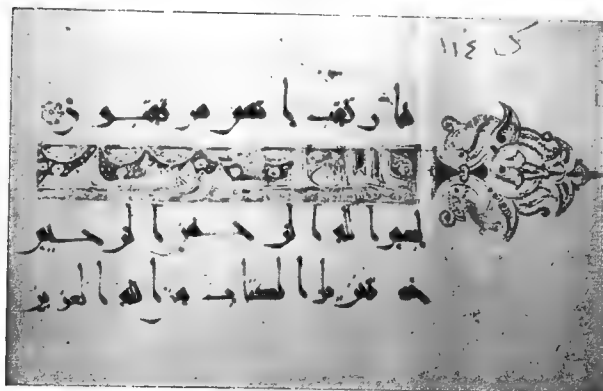 ک ١١٤
فارتقب انهم مرتقبون
بسم الله الرحمن الرحيم
حم تنزيل الكتب من الله العزيز